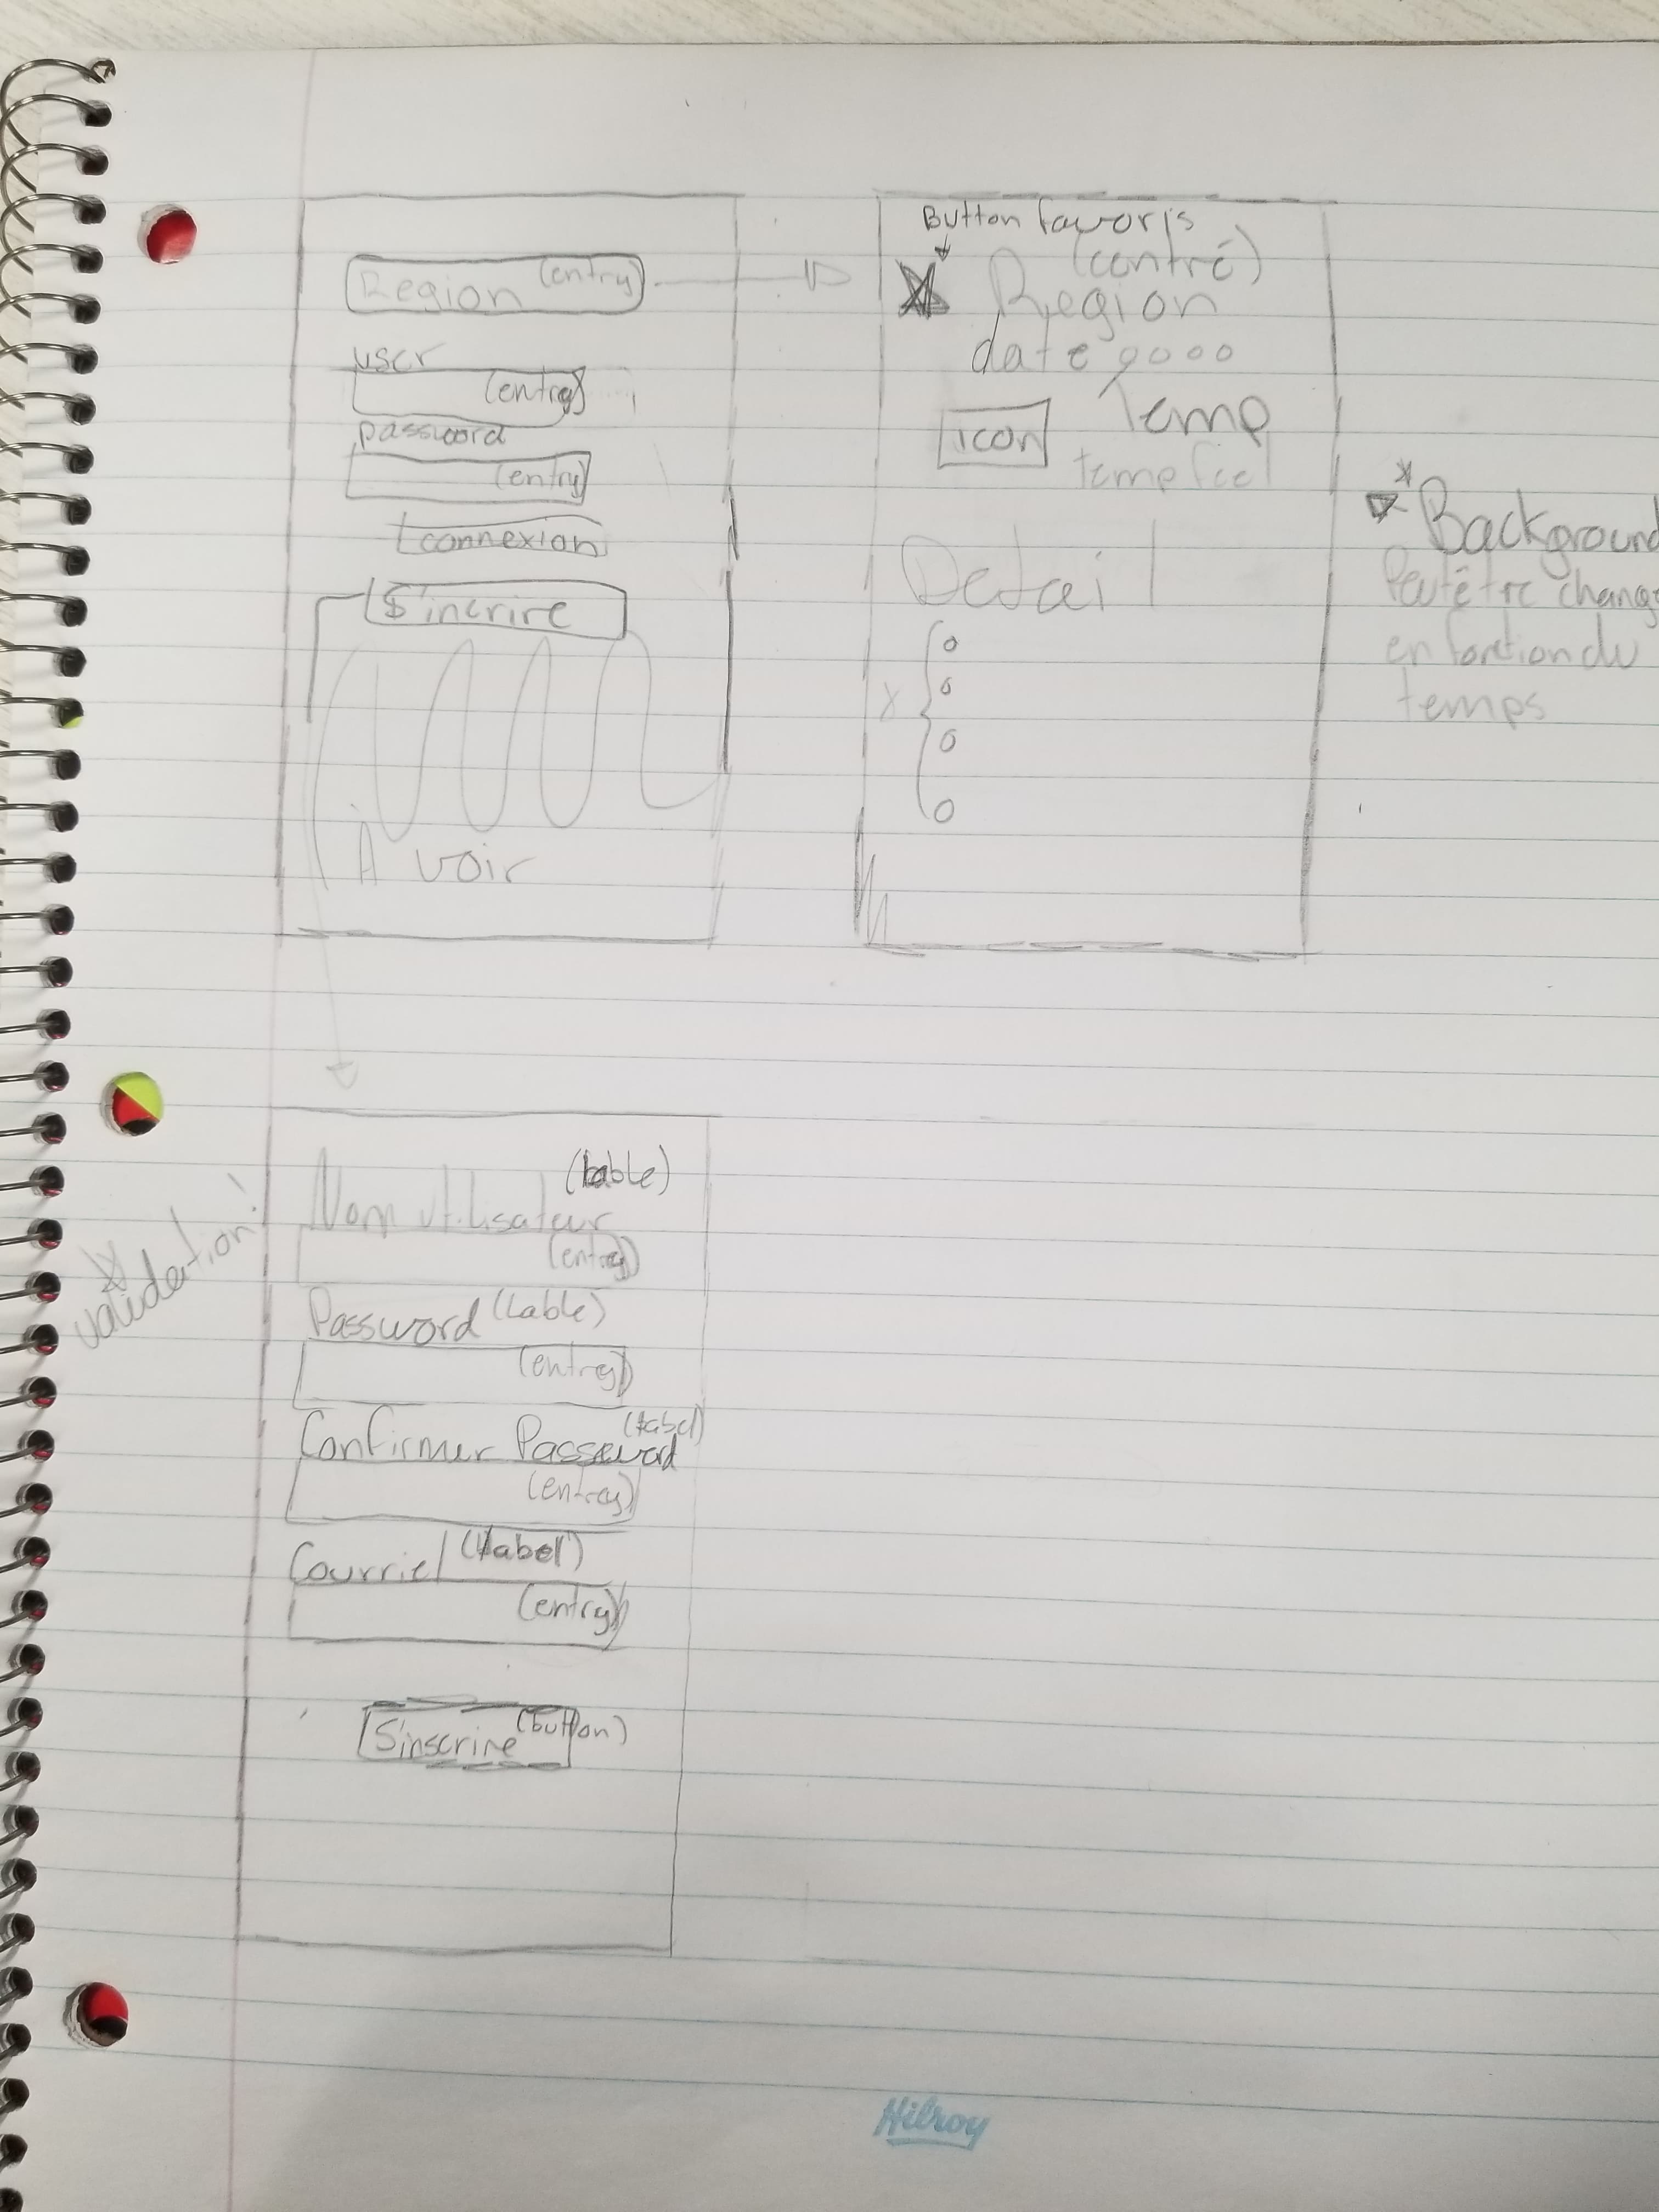 Region (entry)
user
(entry)
password
(entry)
connexion
S'incrire
À voir
Button favoris
(centré)
Region
date
Temp
icon
temp feel
Detail
* Background
Peut être change
en fonction du
temps
validation!
(lable)
Nom utilisateur
(entry)
Password (Lable)
(entry)
(label)
Confirmer Password
(entry)
Courriel (label)
(entry)
S'inscrire (button)
Hilroy